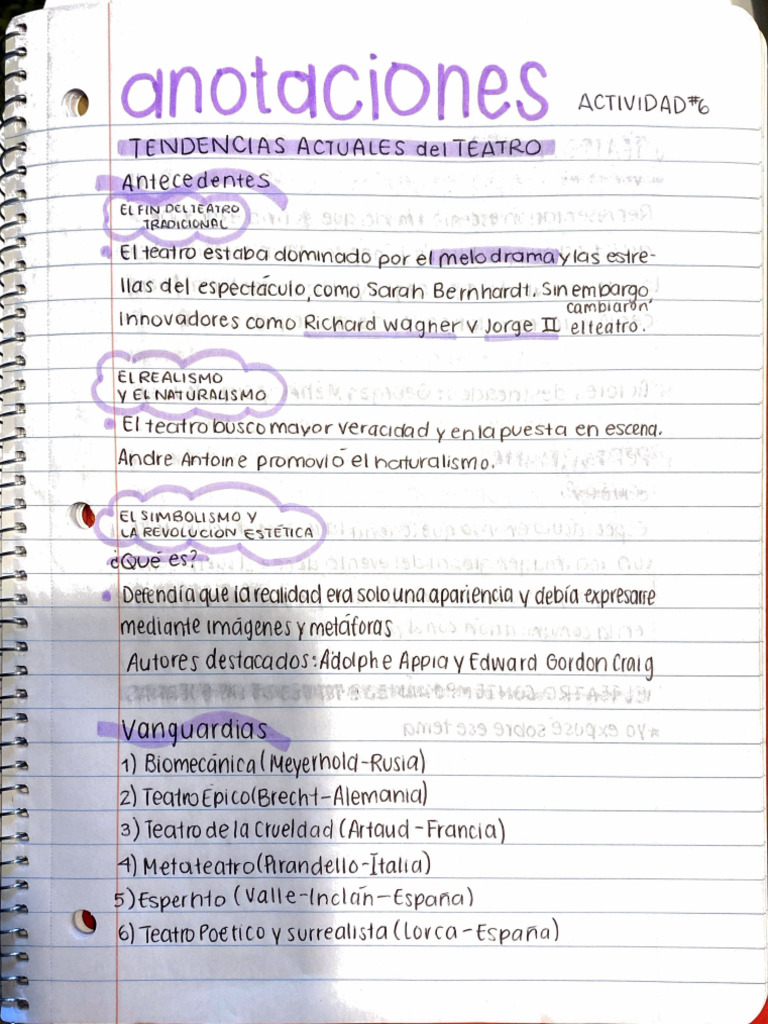 anotaciones ACTIVIDAD #6
TENDENCIAS ACTUALES del TEATRO
Antecedentes
EL FIN DEL TEATRO
TRADICIONAL
El teatro estaba dominado por el melodrama y las estre-
llas del espectáculo, como Sarah Bernhardt. Sin embargo
innovadores como Richard Wagner y Jorge II cambiaron el teatro.
EL REALISMO
Y EL NATURALISMO
El teatro busco mayor veracidad y en la puesta en escena.
Andre Antoine promovió el naturalismo.
EL SIMBOLISMO Y
LA REVOLUCION ESTÉTICA
¿Qué es?
Defendía que la realidad era solo una apariencia y debía expresarre
mediante imágenes y metáforas
Autores destacados: Adolphe Appia y Edward Gordon Craig
Vanguardias
1) Biomecánica (Meyerhold-Rusia)
2) Teatro Epico (Brecht-Alemania)
3) Teatro de la Crueldad (Artaud-Francia)
4) Metateatro (Pirandello-Italia)
5) Esperhto (Valle-Inclán-España)
6) Teatro Poetico y surrealista (Lorca-España)